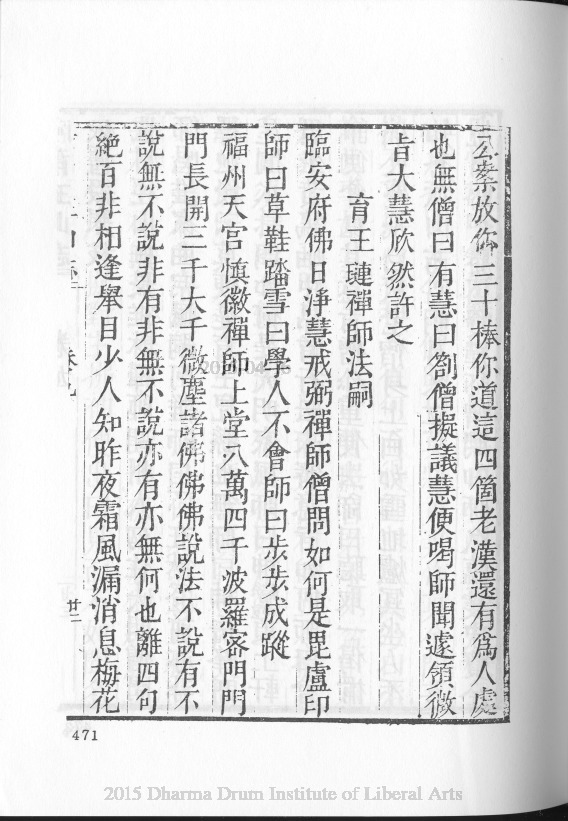 公案放你三十棒你道這四箇老漢還有爲人處
也無僧曰有慧曰劄僧擬議慧便喝師聞遽領微
旨大慧欣然許之
育王璉禪師法嗣
臨安府佛日淨慧戒弼禪師僧問如何是毘盧印
師曰草鞋踏雪曰學人不會師曰步步成蹤
福州天宮慎徽禪師上堂八萬四千波羅密門門
門長開三千大千微塵諸佛佛佛說法不說有不
說無不說非有非無不說亦有亦無何也離四句
絕百非相逢舉目少人知昨夜霜風漏消息梅花
卷九
廿二
471
2015 Dharma Drum Institute of Liberal Arts